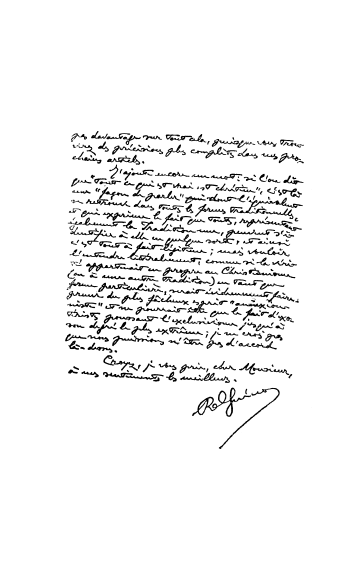 pas davantage sur tout cela, puisque vous trou-
virez des précisions plus complètes dans mes pro-
chains articles.
J'ajoute encore un mot : si l'on dit
que "tout ce qui est vrai est chrétien", c'est là
une "façon de parler" dont l'équivalent
se retrouve dans toutes les formes traditionnelles
et qui exprime le fait que toutes, représentant
également la Tradition une, peuvent s'i-
dentifier à elle en quelque sorte, et ainsi
c'est tout à fait légitime ; mais vouloir
l'entendre littéralement, comme si la vérité
appartenait en propre au Christianisme
(ou à une autre tradition) en tant que
forme particulière, serait évidemment faire
preuve du plus fâcheux esprit
et ne pourrait être que le fait
poussant l'exclusivisme jusqu'à
son degré le plus extrême ; je ne crois pas
que nous puissions n'être pas d'accord
là-dessus.
Croyez, je vous prie, cher Monsieur,
à mes sentiments les meilleurs.